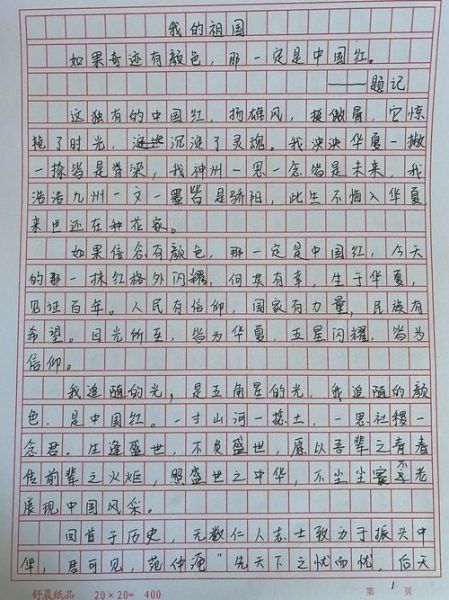 我的祖国
如果奇迹有颜色，那一定是中国红。
——题记
这独有的中国红，扬雄风，接傲骨，它惊
艳了时光，沉淀了灵魂。我泱泱华夏一撇
一捺皆是脊梁，我神州一思一念皆是未来，我
浩浩九州一文一墨皆是骄阳，此生不悔入华夏
来世还在种花家。
如果信念有颜色，那一定是中国红，今天
的那一抹红格外闪耀，何其有幸，生于华夏，
见证百年。人民有信仰，国家有力量，民族有
希望。目光所至，皆为华夏，五星闪耀，皆为
信仰。
我追随的光，是五角星的光，我追随的颜
色，是中国红。一寸山河一抔土，一思社稷一
念君。生逢盛世，不负盛世，愿以吾辈之青春
传前辈之火炬，照盛世之中华，不老
展现中国风采。
回首于历史，无数仁人志士致力于振头中
华，君可见，范仲淹“先天下之忧而忧，后天
舒晨纸品 20×20=400 第 1 页